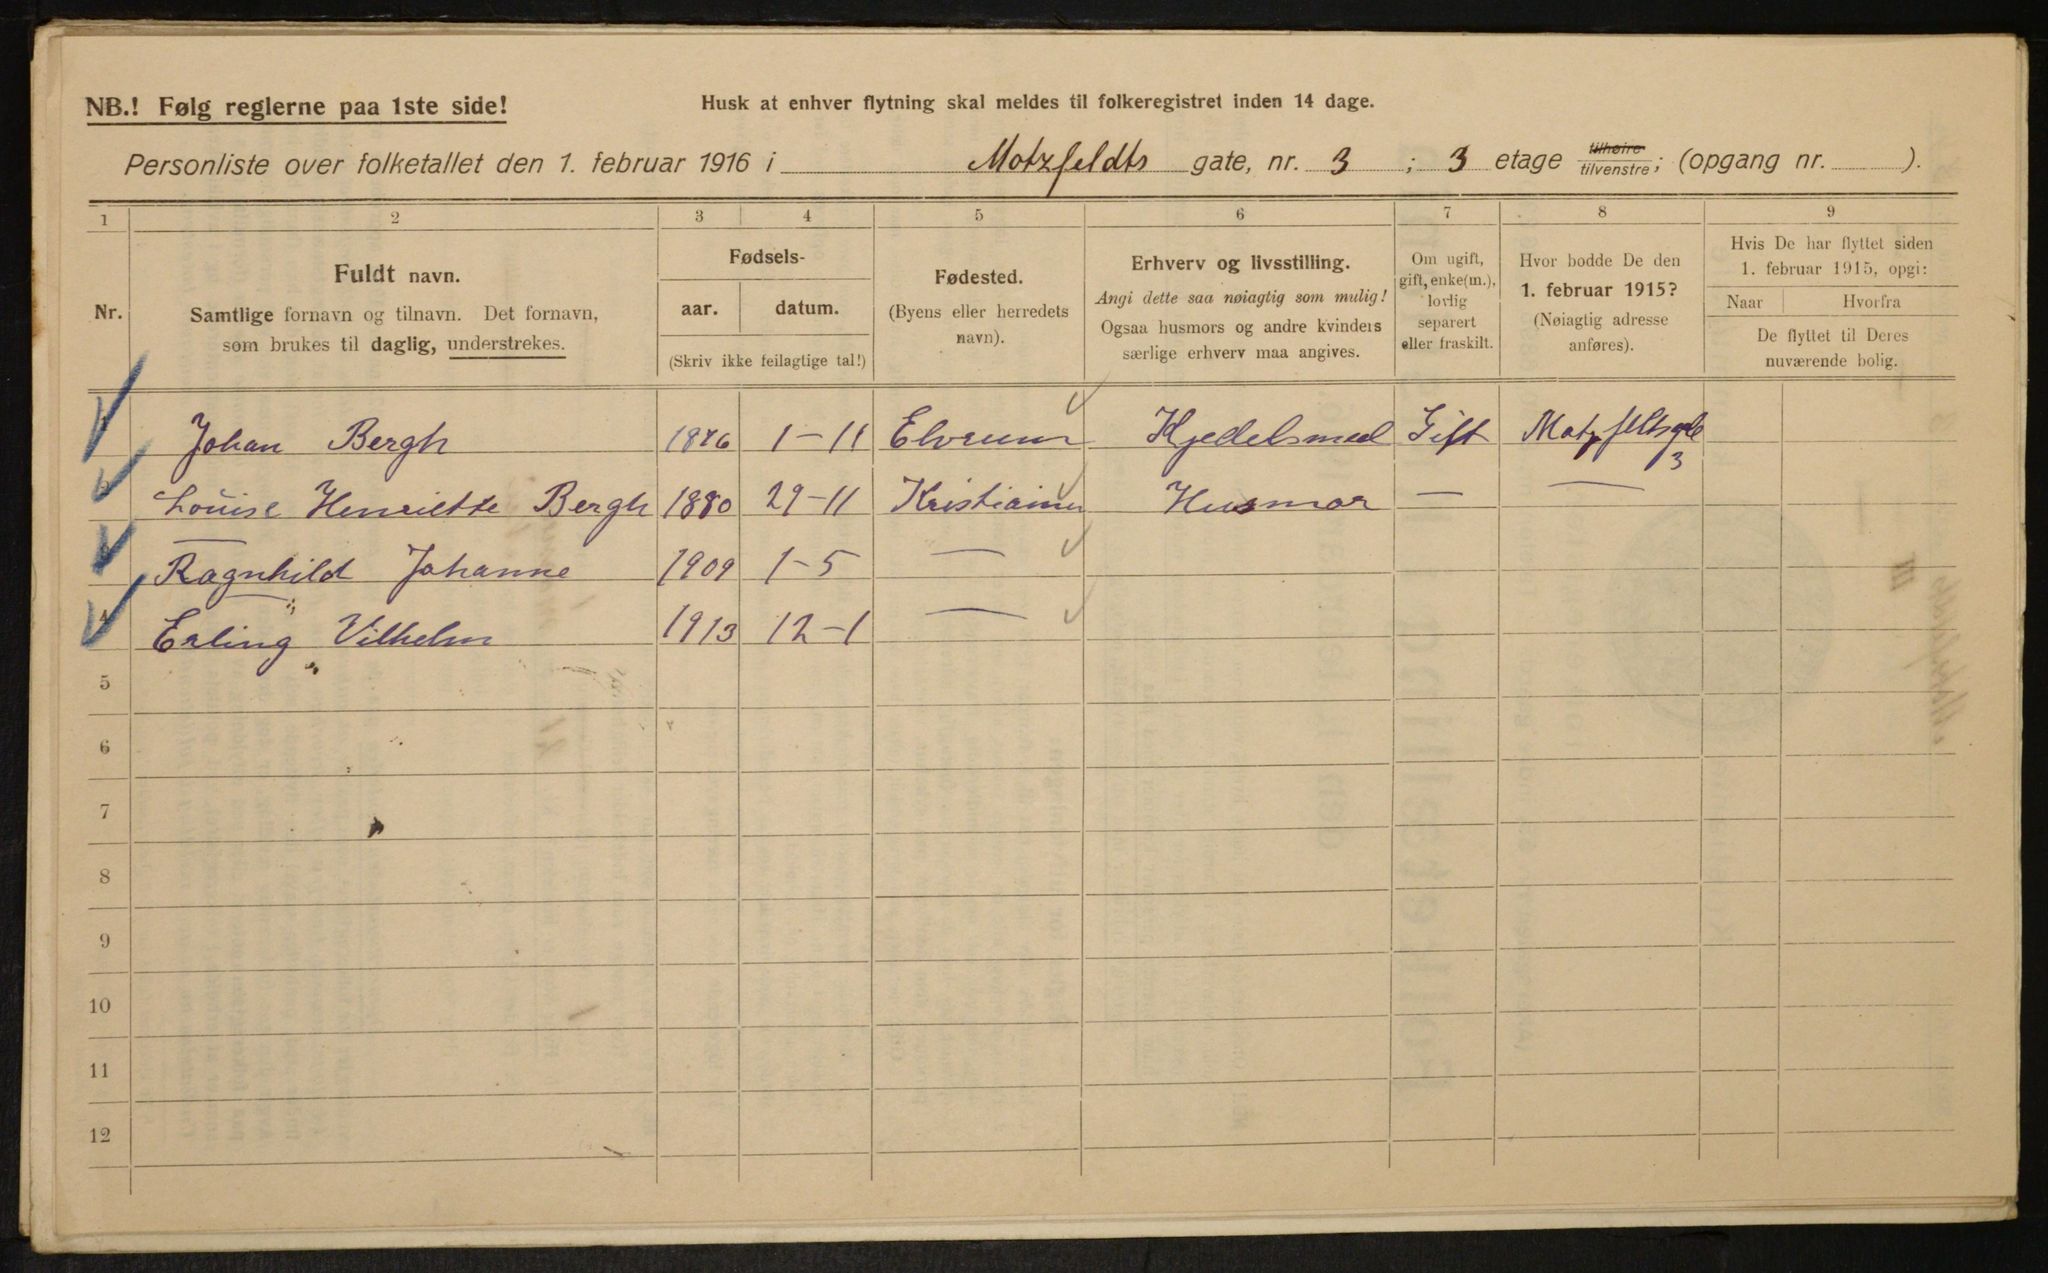 NB.! Følg reglerne paa 1ste side!
Husk at enhver flytning skal meldes til folkeregistret inden 14 dage.
Personliste over folketallet den 1. februar 1916 i Motzfeldts gate, nr. 3 ; 3 etage tilhøire tilvenstre; (opgang nr. ).
1 2 3 4 5 6 7 8 9
Nr.
Fuldt navn.
Samtlige fornavn og tilnavn. Det fornavn,
som brukes til daglig, understrekes.
Fødsels-
aar. datum.
(Skriv ikke feilagtige tal!)
Fødested.
(Byens eller herredets
navn).
Erhverv og livsstilling.
Angi dette saa nøiagtig som mulig!
Ogsaa husmors og andre kvinders
særlige erhverv maa angives.
Om ugift,
gift, enke(m.),
lovlig
separert
eller fraskilt.
Hvor bodde De den
1. februar 1915?
(Nøiagtig adresse
anføres).
Hvis De har flyttet siden
1. februar 1915, opgi:
Naar Hvorfra
De flyttet til Deres
nuværende bolig.
Johan Bergh 1876 1-11 Elvrum Kjedelsmed Gift
3
Louise Henriette Bergh 1880 29-11 Kristiania Husmor — —
Ragnhild Johanne 1909 1-5 —
"
4 Erling Vilhelm 1913 12-1 —
"
5
6
7
8
9
10
11
12